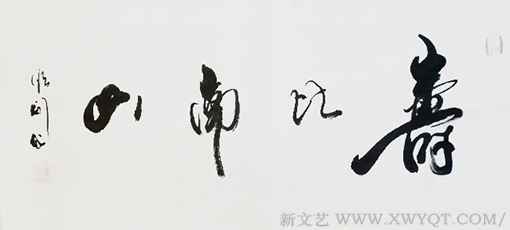 寿比南山
新文艺 WWW.XWYQT.COM/